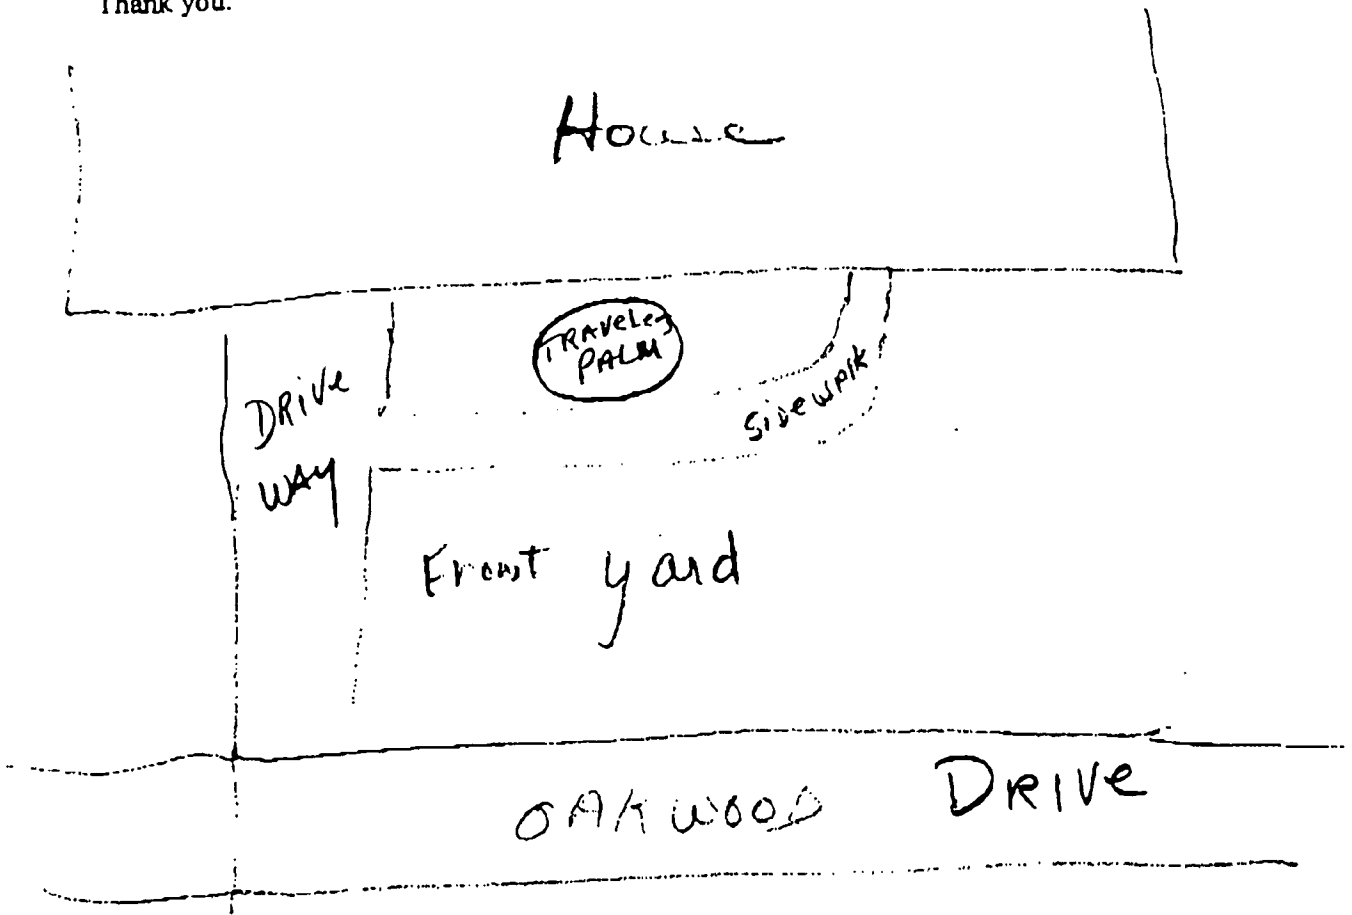 Thank you.
House
TRAVELER
PALM
DRIVE
WAY
SIDEWALK
Front yard
OAKWOOD DRIVE